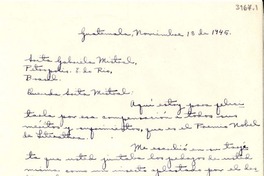 3167.1
Guatemala, Noviembre 18 de 1945.
Srita Gabriela Mistral,
Petrópolis. E. do Rio,
Brasil.
Querida Srita Mistral:
Aquí estoy para felici-
tarla por esa compensación a todos sus
méritos y sufrimientos, que es el Premio Nobel
de Literatura.
Me escribió en un
ta que usted juntaba los pedazos de
mismo, como un insecto aplastado por el